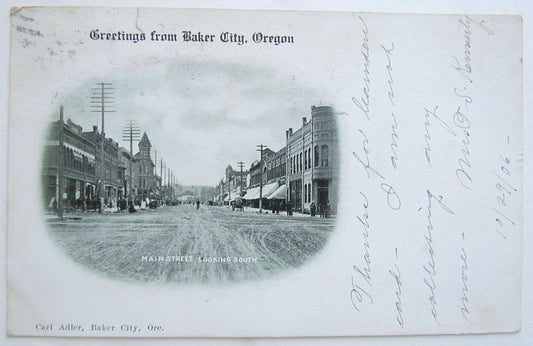 Greetings from Baker City, Oregon
MAIN STREET LOOKING SOUTH
Carl Adler, Baker City, Ore.
Thanks for
card - I am not
collecting any
more - Miss S. Kennerly
12/29/06 -